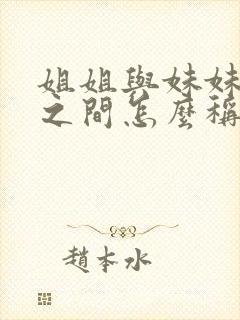 姐姐與妹妹
之間怎麼稱
趙本水